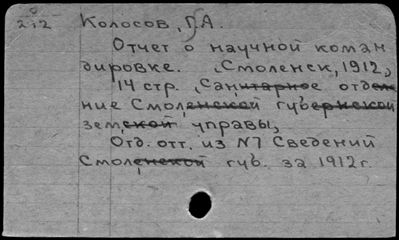 2,2 Колосов, Г.А.
Отчет о научной коман
дировке. Смоленск, 1912,
14 стр. Санитарное отделе
ние Смоленской губернской
земской управы,
Отд. отт. из N7 Сведений
Смоленской губ. за 1912г.